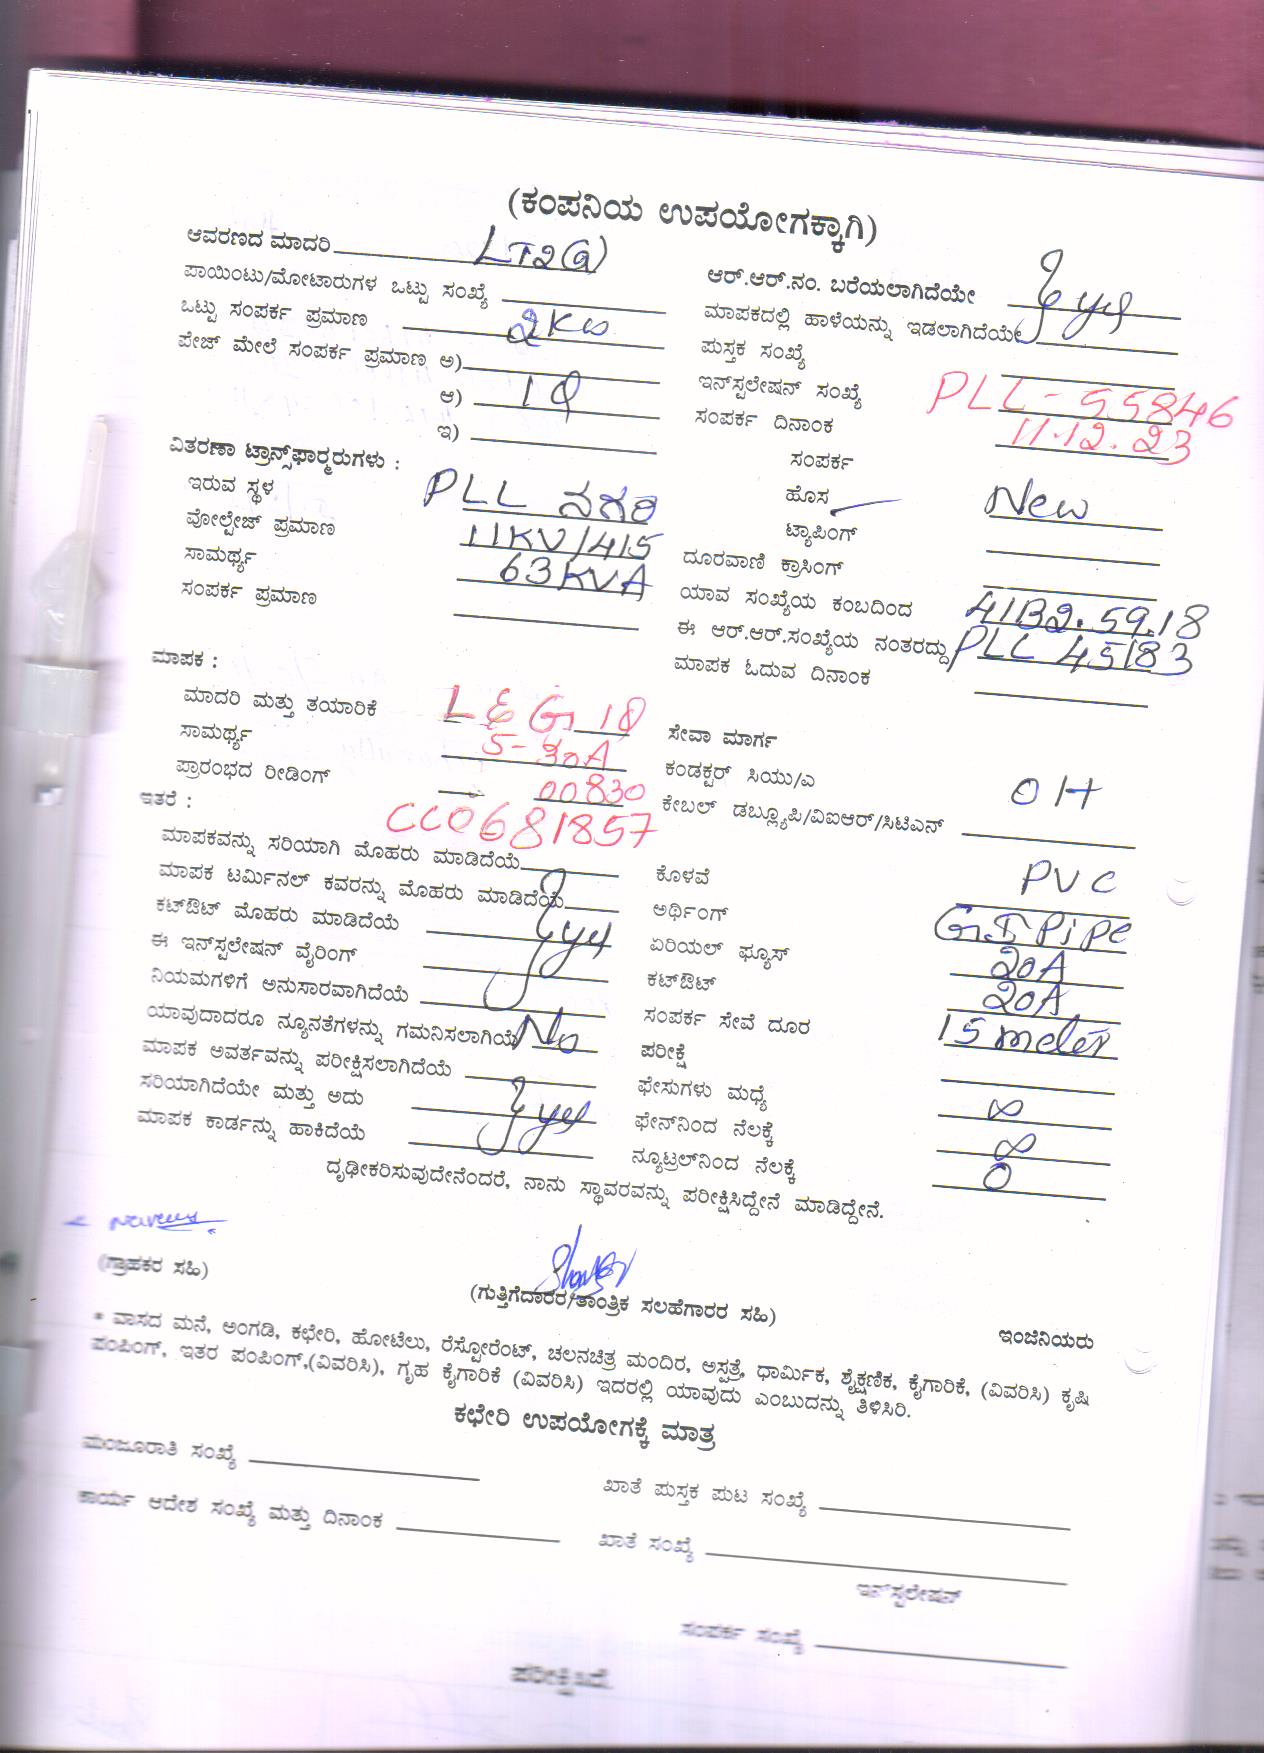 (ಕಂಪನಿಯ ಉಪಯೋಗಕ್ಕಾಗಿ)
ಆವರಣದ ಮಾದರಿ LT2(a)
ಪಾಯಿಂಟು/ಮೋಟಾರುಗಳ ಒಟ್ಟು ಸಂಖ್ಯೆ
ಒಟ್ಟು ಸಂಪರ್ಕ ಪ್ರಮಾಣ 2Kw
ಪೇಜ್ ಮೇಲೆ ಸಂಪರ್ಕ ಪ್ರಮಾಣ ಅ)
ಆ) 1Φ
ಇ)
ವಿತರಣಾ ಟ್ರಾನ್ಸ್‌ಫಾರ್ಮರುಗಳು :
ಇರುವ ಸ್ಥಳ PLL ನಗರ
ವೋಲ್ಟೇಜ್ ಪ್ರಮಾಣ 11KV/415
ಸಾಮರ್ಥ್ಯ 63KVA
ಸಂಪರ್ಕ ಪ್ರಮಾಣ
ಮಾಪಕ :
ಮಾದರಿ ಮತ್ತು ತಯಾರಿಕೆ L&G 1Φ
ಸಾಮರ್ಥ್ಯ 5-30A
ಪ್ರಾರಂಭದ ರೀಡಿಂಗ್ 00830
ಇತರೆ : CC0681857
ಮಾಪಕವನ್ನು ಸರಿಯಾಗಿ ಮೊಹರು ಮಾಡಿದೆಯೆ
ಮಾಪಕ ಟರ್ಮಿನಲ್ ಕವರನ್ನು ಮೊಹರು ಮಾಡಿದೆಯೆ
ಕಟ್‌ಔಟ್ ಮೊಹರು ಮಾಡಿದೆಯೆ } yes
ಈ ಇನ್‌ಸ್ಟಲೇಷನ್ ವೈರಿಂಗ್
ನಿಯಮಗಳಿಗೆ ಅನುಸಾರವಾಗಿದೆಯೆ
ಯಾವುದಾದರೂ ನ್ಯೂನತೆಗಳನ್ನು ಗಮನಿಸಲಾಗಿಯೆ No
ಮಾಪಕ ಅವರ್ತವನ್ನು ಪರೀಕ್ಷಿಸಲಾಗಿದೆಯೆ
ಸರಿಯಾಗಿದೆಯೇ ಮತ್ತು ಅದು } yes
ಮಾಪಕ ಕಾರ್ಡನ್ನು ಹಾಕಿದೆಯೆ
ಆರ್.ಆರ್.ನಂ. ಬರೆಯಲಾಗಿದೆಯೇ } yes
ಮಾಪಕದಲ್ಲಿ ಹಾಳೆಯನ್ನು ಇಡಲಾಗಿದೆಯೇ
ಪುಸ್ತಕ ಸಂಖ್ಯೆ
ಇನ್‌ಸ್ಟಲೇಷನ್ ಸಂಖ್ಯೆ PLL-55846
ಸಂಪರ್ಕ ದಿನಾಂಕ 11.12.23
ಸಂಪರ್ಕ
ಹೊಸ New
ಟ್ಯಾಪಿಂಗ್
ದೂರವಾಣಿ ಕ್ರಾಸಿಂಗ್
ಯಾವ ಸಂಖ್ಯೆಯ ಕಂಬದಿಂದ 41B2.59.18
ಈ ಆರ್.ಆರ್.ಸಂಖ್ಯೆಯ ನಂತರದ್ದು PLL 45183
ಮಾಪಕ ಓದುವ ದಿನಾಂಕ
ಸೇವಾ ಮಾರ್ಗ
ಕಂಡಕ್ಟರ್ ಸಿಯು/ಎ OH
ಕೇಬಲ್ ಡಬ್ಲ್ಯೂಪಿ/ವಿಐಆರ್/ಸಿಟಿಎನ್
ಕೊಳವೆ PVC
ಅರ್ಥಿಂಗ್ GI Pipe
ಏರಿಯಲ್ ಫ್ಯೂಸ್ 20A
ಕಟ್‌ಔಟ್ 20A
ಸಂಪರ್ಕ ಸೇವೆ ದೂರ 15 meter
ಪರೀಕ್ಷೆ
ಫೇಸುಗಳು ಮಧ್ಯೆ ∞
ಫೇನ್‌ನಿಂದ ನೆಲಕ್ಕೆ ∞
ನ್ಯೂಟ್ರಲ್‌ನಿಂದ ನೆಲಕ್ಕೆ 0
ದೃಢೀಕರಿಸುವುದೇನೆಂದರೆ, ನಾನು ಸ್ಥಾವರವನ್ನು ಪರೀಕ್ಷಿಸಿದ್ದೇನೆ ಮಾಡಿದ್ದೇನೆ.
(ಗ್ರಾಹಕರ ಸಹಿ)
(ಗುತ್ತಿಗೆದಾರರ/ತಾಂತ್ರಿಕ ಸಲಹೆಗಾರರ ಸಹಿ)
ಇಂಜಿನಿಯರು
* ವಾಸದ ಮನೆ, ಅಂಗಡಿ, ಕಛೇರಿ, ಹೋಟೆಲು, ರೆಸ್ಟೋರೆಂಟ್, ಚಲನಚಿತ್ರ ಮಂದಿರ, ಅಸ್ಪತ್ರೆ, ಧಾರ್ಮಿಕ, ಶೈಕ್ಷಣಿಕ, ಕೈಗಾರಿಕೆ, (ವಿವರಿಸಿ) ಕೃಷಿ
ಪಂಪಿಂಗ್, ಇತರ ಪಂಪಿಂಗ್,(ವಿವರಿಸಿ), ಗೃಹ ಕೈಗಾರಿಕೆ (ವಿವರಿಸಿ) ಇದರಲ್ಲಿ ಯಾವುದು ಎಂಬುದನ್ನು ತಿಳಿಸಿರಿ.
ಕಛೇರಿ ಉಪಯೋಗಕ್ಕೆ ಮಾತ್ರ
ಮಂಜೂರಾತಿ ಸಂಖ್ಯೆ
ಖಾತೆ ಪುಸ್ತಕ ಪುಟ ಸಂಖ್ಯೆ
ಕಾರ್ಯ ಆದೇಶ ಸಂಖ್ಯೆ ಮತ್ತು ದಿನಾಂಕ
ಖಾತೆ ಸಂಖ್ಯೆ
ಇನ್‌ಸ್ಟಲೇಷನ್
ಸಂಪರ್ಕ ಸಂಖ್ಯೆ
ಪರೀಕ್ಷಿಸಿದೆ.